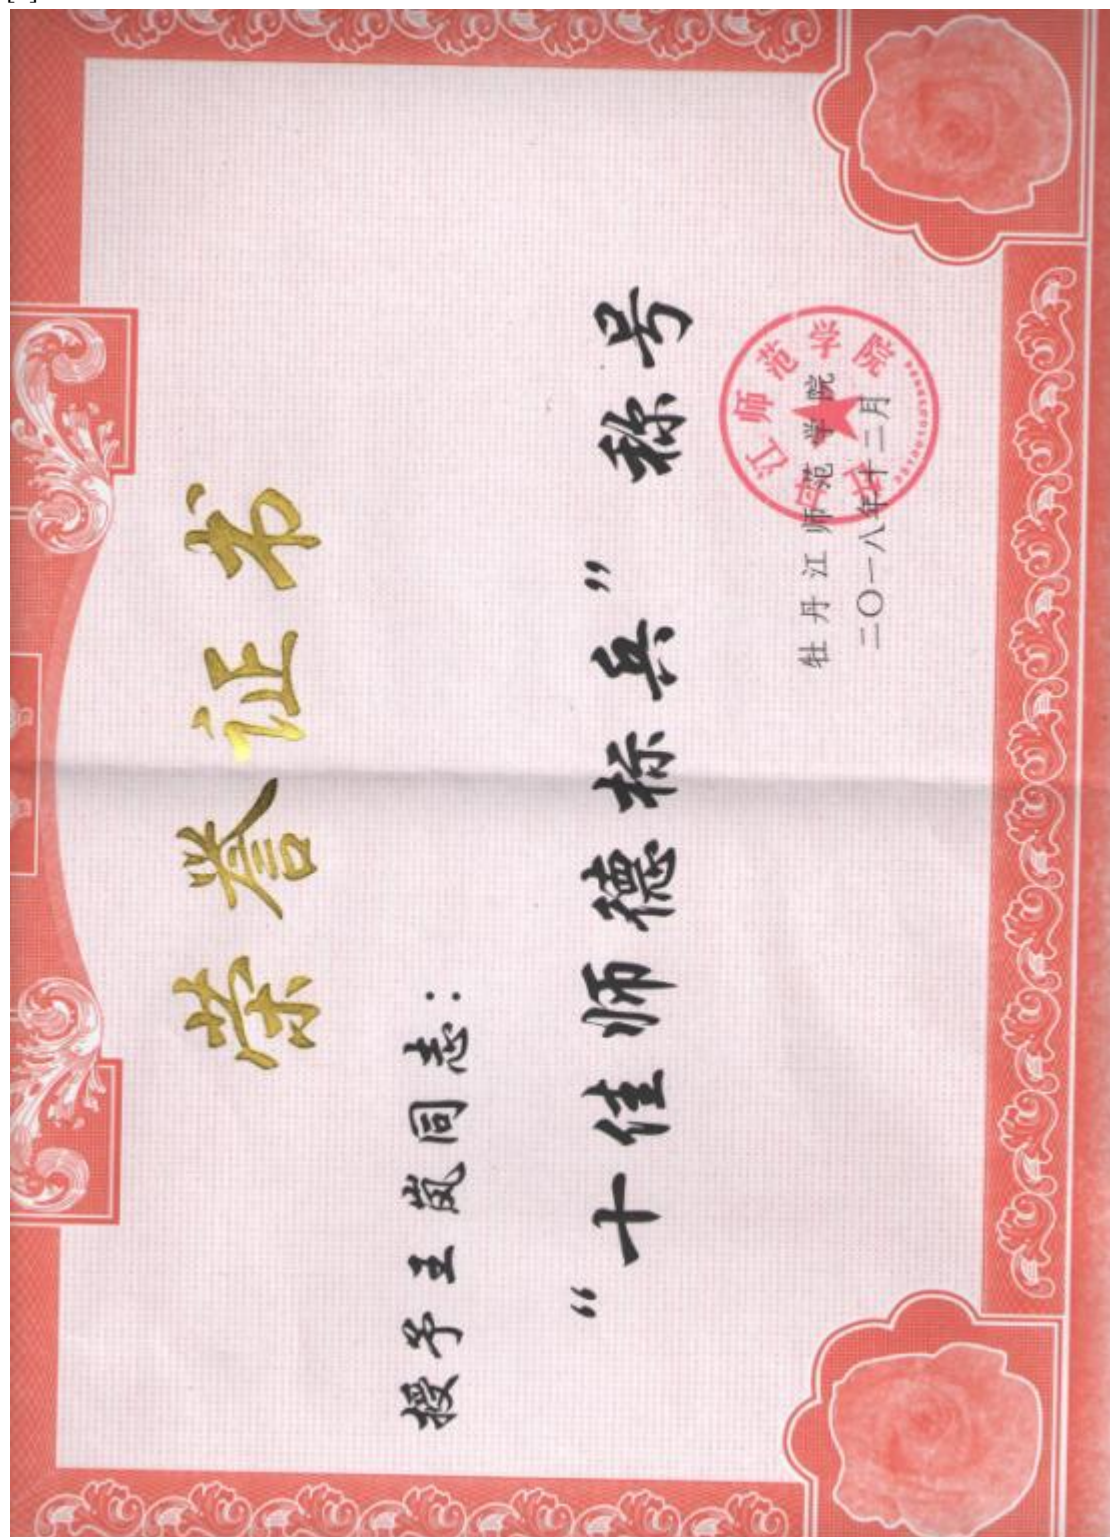 荣誉证书
授予王岚同志：
“十佳师德标兵”称号
牡丹江师范学院
二〇一八年十二月
牡丹江师范学院